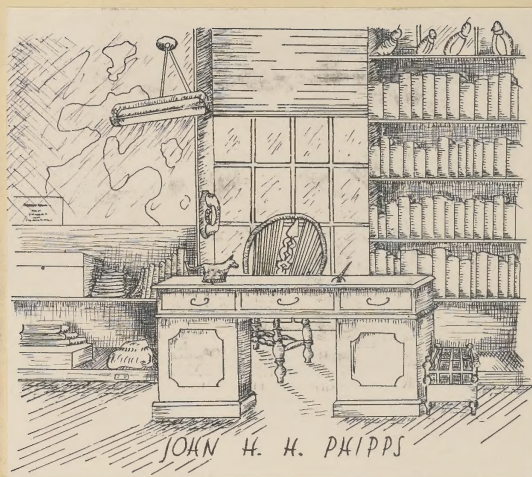 JOHN H. H. PHIPPS